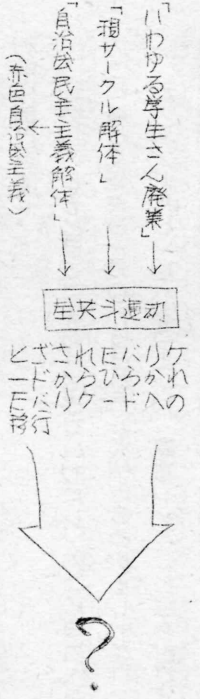 「いわゆる学生さん廃業」
「現サークル解体」
「自治会民主主義解体」
(赤色自治会主義)
全共斗運動
とざされたバリケ
ードからひらかれ
たバリケードへの
移行
?